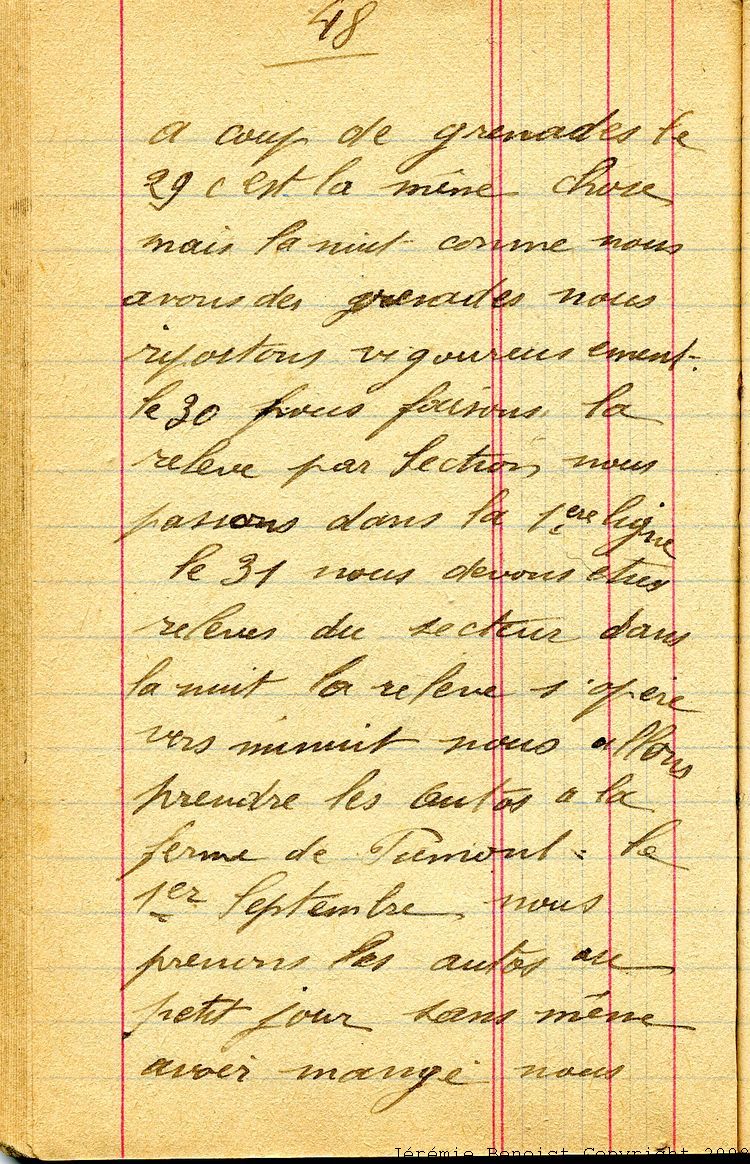 48
a coup de grenades le
29 c'est la même chose
mais la nuit comme nous
avons des grenades nous
ripostons vigoureusement.
le 30 nous faisons la
relève par section, nous
passons dans la 1ere ligne
le 31 nous devons etres
relèves du secteur dans
la nuit la releve s'opère
vers minuit nous allons
prendre les autos a la
ferme de =. le
1er Septembre nous
prenons les autos au
petit jour sans même
avoir mangé nous
Jérémie Benoist Copyright